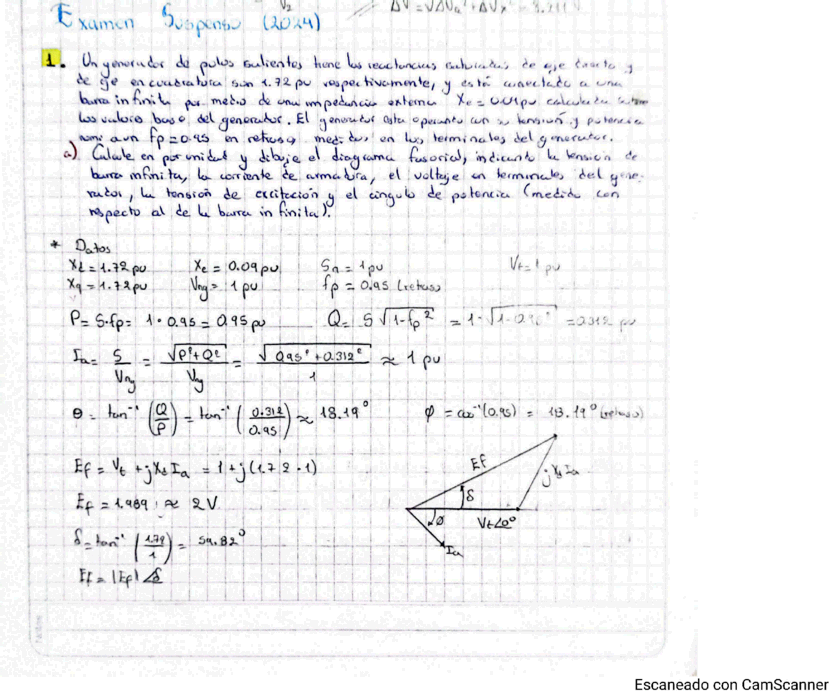 ΔV = √ΔVd² + ΔVx² = 3.211 V
V2
Examen Suspenso (2024)
1. Un generador de polos salientes tiene las reactancias saturadas de eje directo y
de eje en cuadratura son 1.72 pu respectivamente, y está conectado a una
barra infinita por medio de una impedancia externa Xe = 0.09 pu calculada
los valores base del generador. El generador esta operando con su tensión y potencia
nominal a un fp = 0.95 en retraso, medidas en las terminales del generador.
a) Calcule en por unidad y dibuje el diagrama fasorial, indicando la tensión de
barra infinita, la corriente de armadura, el voltaje en terminales del gene-
rador, la tensión de excitación y el ángulo de potencia (medido con
respecto al de la barra infinita).
* Datos
Xd = 1.72 pu Xe = 0.09 pu Sn = 1 pu Vt = 1 pu
Xq = 1.72 pu Vng = 1 pu fp = 0.95 (retraso)
P = S·fp = 1·0.95 = 0.95 pu Q = S √1-fp² = 1·√1-0.95² = 0.312 pu
Ia = S/Vng = √P²+Q²/Vng = √0.95²+0.312²/1 ≈ 1 pu
θ = tan⁻¹(Q/P) = tan⁻¹(0.312/0.95) ≈ 18.19° φ = cos⁻¹(0.95) = 18.19° (retraso)
Ef = Vt + jXd Ia = 1 + j(1.72·1)
Ef = 1.989 ≈ 2 V
δ = tan⁻¹(1.72/1) = 59.82°
Ef = |Ef| ∠δ
Ef
jXd Ia
δ
φ
Vt∠0°
Ia
Escaneado con CamScanner